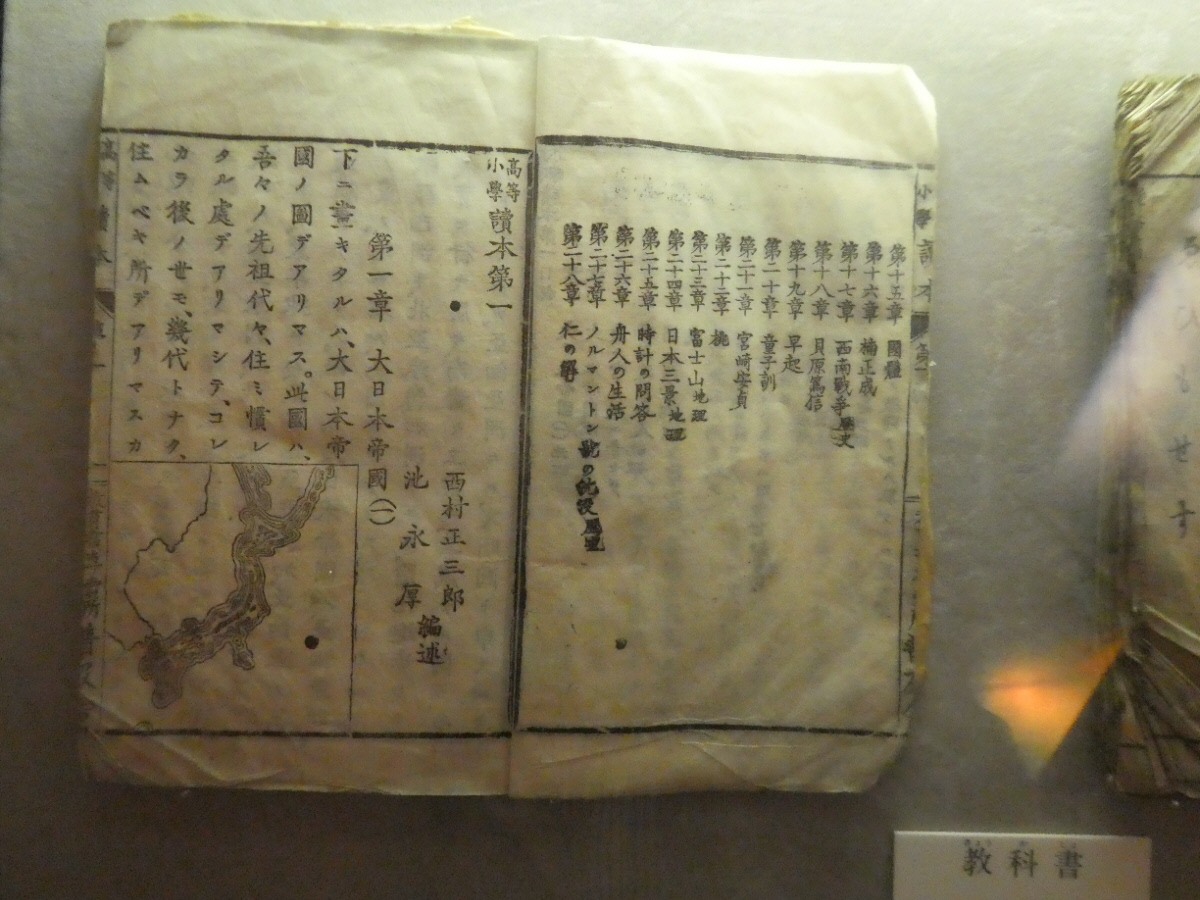 第十五章 國體
第十六章 楠正成
第十七章 西南戰爭 歷史
第十八章 貝原篤信
第十九章 早起
第二十章 童子訓
第二十一章 宮崎安貞
第二十二章 桃
第二十三章 富士山 地理
第二十四章 日本三景 地理
第二十五章 時計の問答
第二十六章 舟人の生活
第二十七章 ノルマントン號の沈沒
第二十八章 仁の
高等小學讀本第一
西村正三郎
池永厚
編述
第一章 大日本帝國(一)
下ニ畫キタルハ、大日本帝
國ノ圖デアリマス。此國ハ、
吾々ノ先祖代々、住ミ慣レ
タル處デアリマシテ、コレ
カラ後ノ世モ、幾代トナク、
住ムベキ所デアリマスカ
高等讀本
ひもせす
教科書